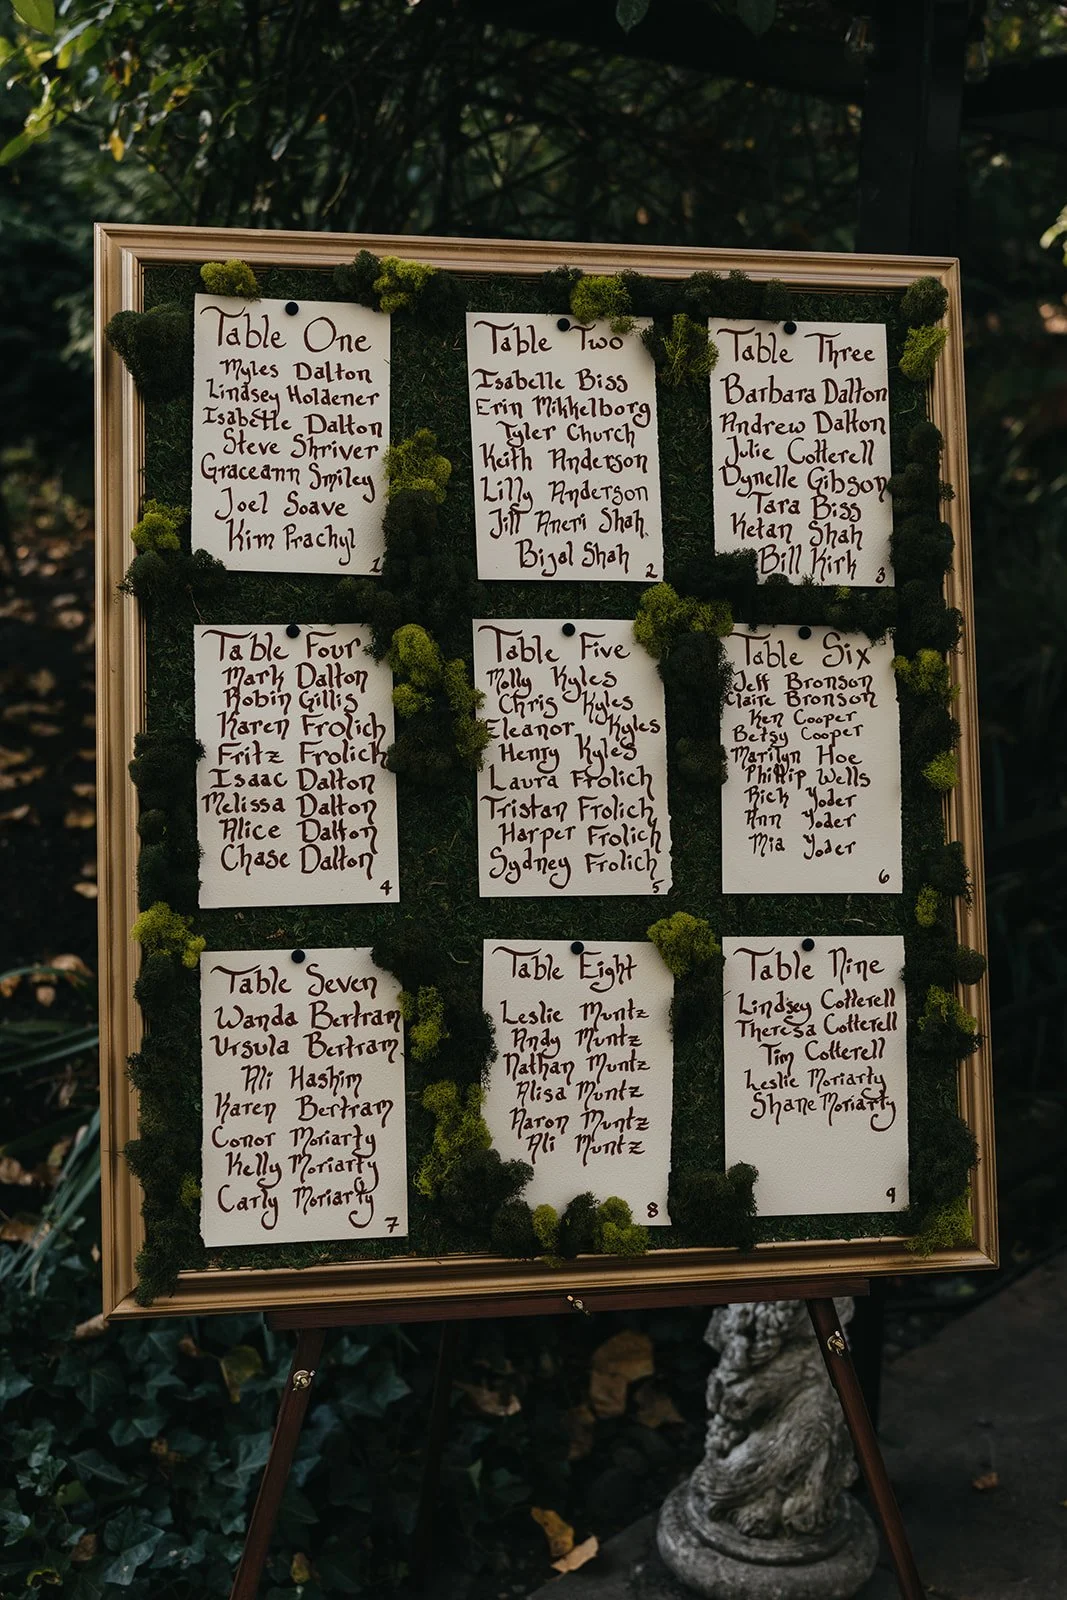 Table One
Myles Dalton
Lindsey Holdener
Isabelle Dalton
Steve Shriver
Graceann Smiley
Joel Soave
Kim Prachyl
1
Table Two
Isabelle Biss
Erin Mikkelborg
Tyler Church
Keith Anderson
Lilly Anderson
Aneri Shah
Bijal Shah
2
Table Three
Barbara Dalton
Andrew Dalton
Julie Cotterell
Dynelle Gibson
Tara Biss
Ketan Shah
Bill Kirk
3
Table Four
Mark Dalton
Robin Gillis
Karen Frolich
Fritz Frolich
Isaac Dalton
Melissa Dalton
Alice Dalton
Chase Dalton
4
Table Five
Molly Kyles
Chris Kyles
Eleanor Kyles
Henry Kyles
Laura Frolich
Tristan Frolich
Harper Frolich
Sydney Frolich
5
Table Six
Jeff Bronson
Claire Bronson
Ken Cooper
Betsy Cooper
Marilyn Hoe
Phillip Wells
Rick Yoder
Ann Yoder
Mia Yoder
6
Table Seven
Wanda Bertram
Ursula Bertram
Ali Hashim
Karen Bertram
Conor Moriarty
Kelly Moriarty
Carly Moriarty
7
Table Eight
Leslie Muntz
Andy Muntz
Nathan Muntz
Alisa Muntz
Aaron Muntz
Ali Muntz
8
Table Nine
Lindsey Cotterell
Theresa Cotterell
Tim Cotterell
Leslie Moriarty
Shane Moriarty
9